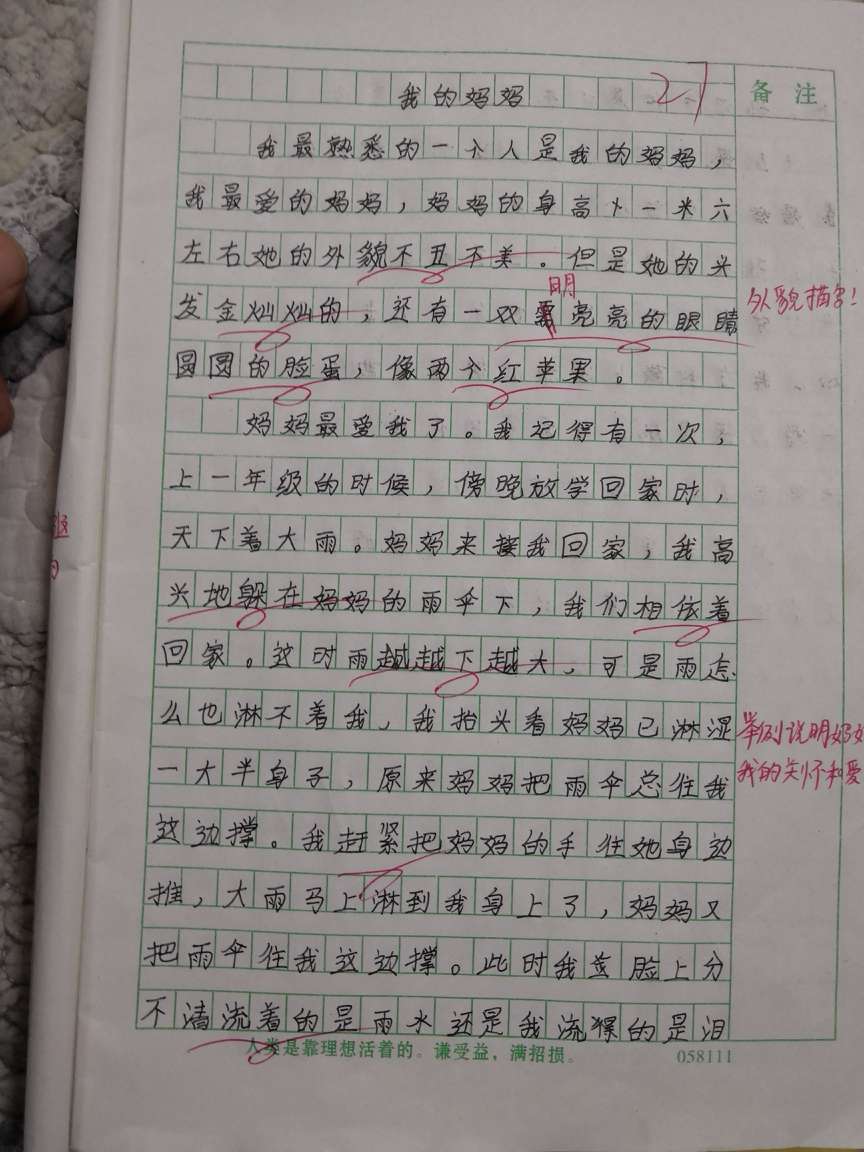 我的妈妈 27 备注
我最熟悉的一个人是我的妈妈，
我最爱的妈妈，妈妈的身高一米六
左右她的外貌不丑不美。但是她的头
明
发金灿灿的，还有一双亮亮的眼睛 外貌描写！
圆圆的脸蛋，像两个红苹果。
妈妈最爱我了。我记得有一次，
上一年级的时候，傍晚放学回家时，
天下着大雨。妈妈来接我回家，我高
兴地躲在妈妈的雨伞下，我们相依着
回家。这时雨越越下越大，可是雨怎
么也淋不着我，我抬头看妈妈已淋湿 举例说明妈
一大半身子，原来妈妈把雨伞总往我 我的关怀和爱
这边撑。我赶紧把妈妈的手往她身边
推，大雨马上淋到我身上了，妈妈又
把雨伞往我这边撑。此时我脸上分
不清流着的是雨水还是我流的是泪
人类是靠理想活着的。谦受益，满招损。 058111